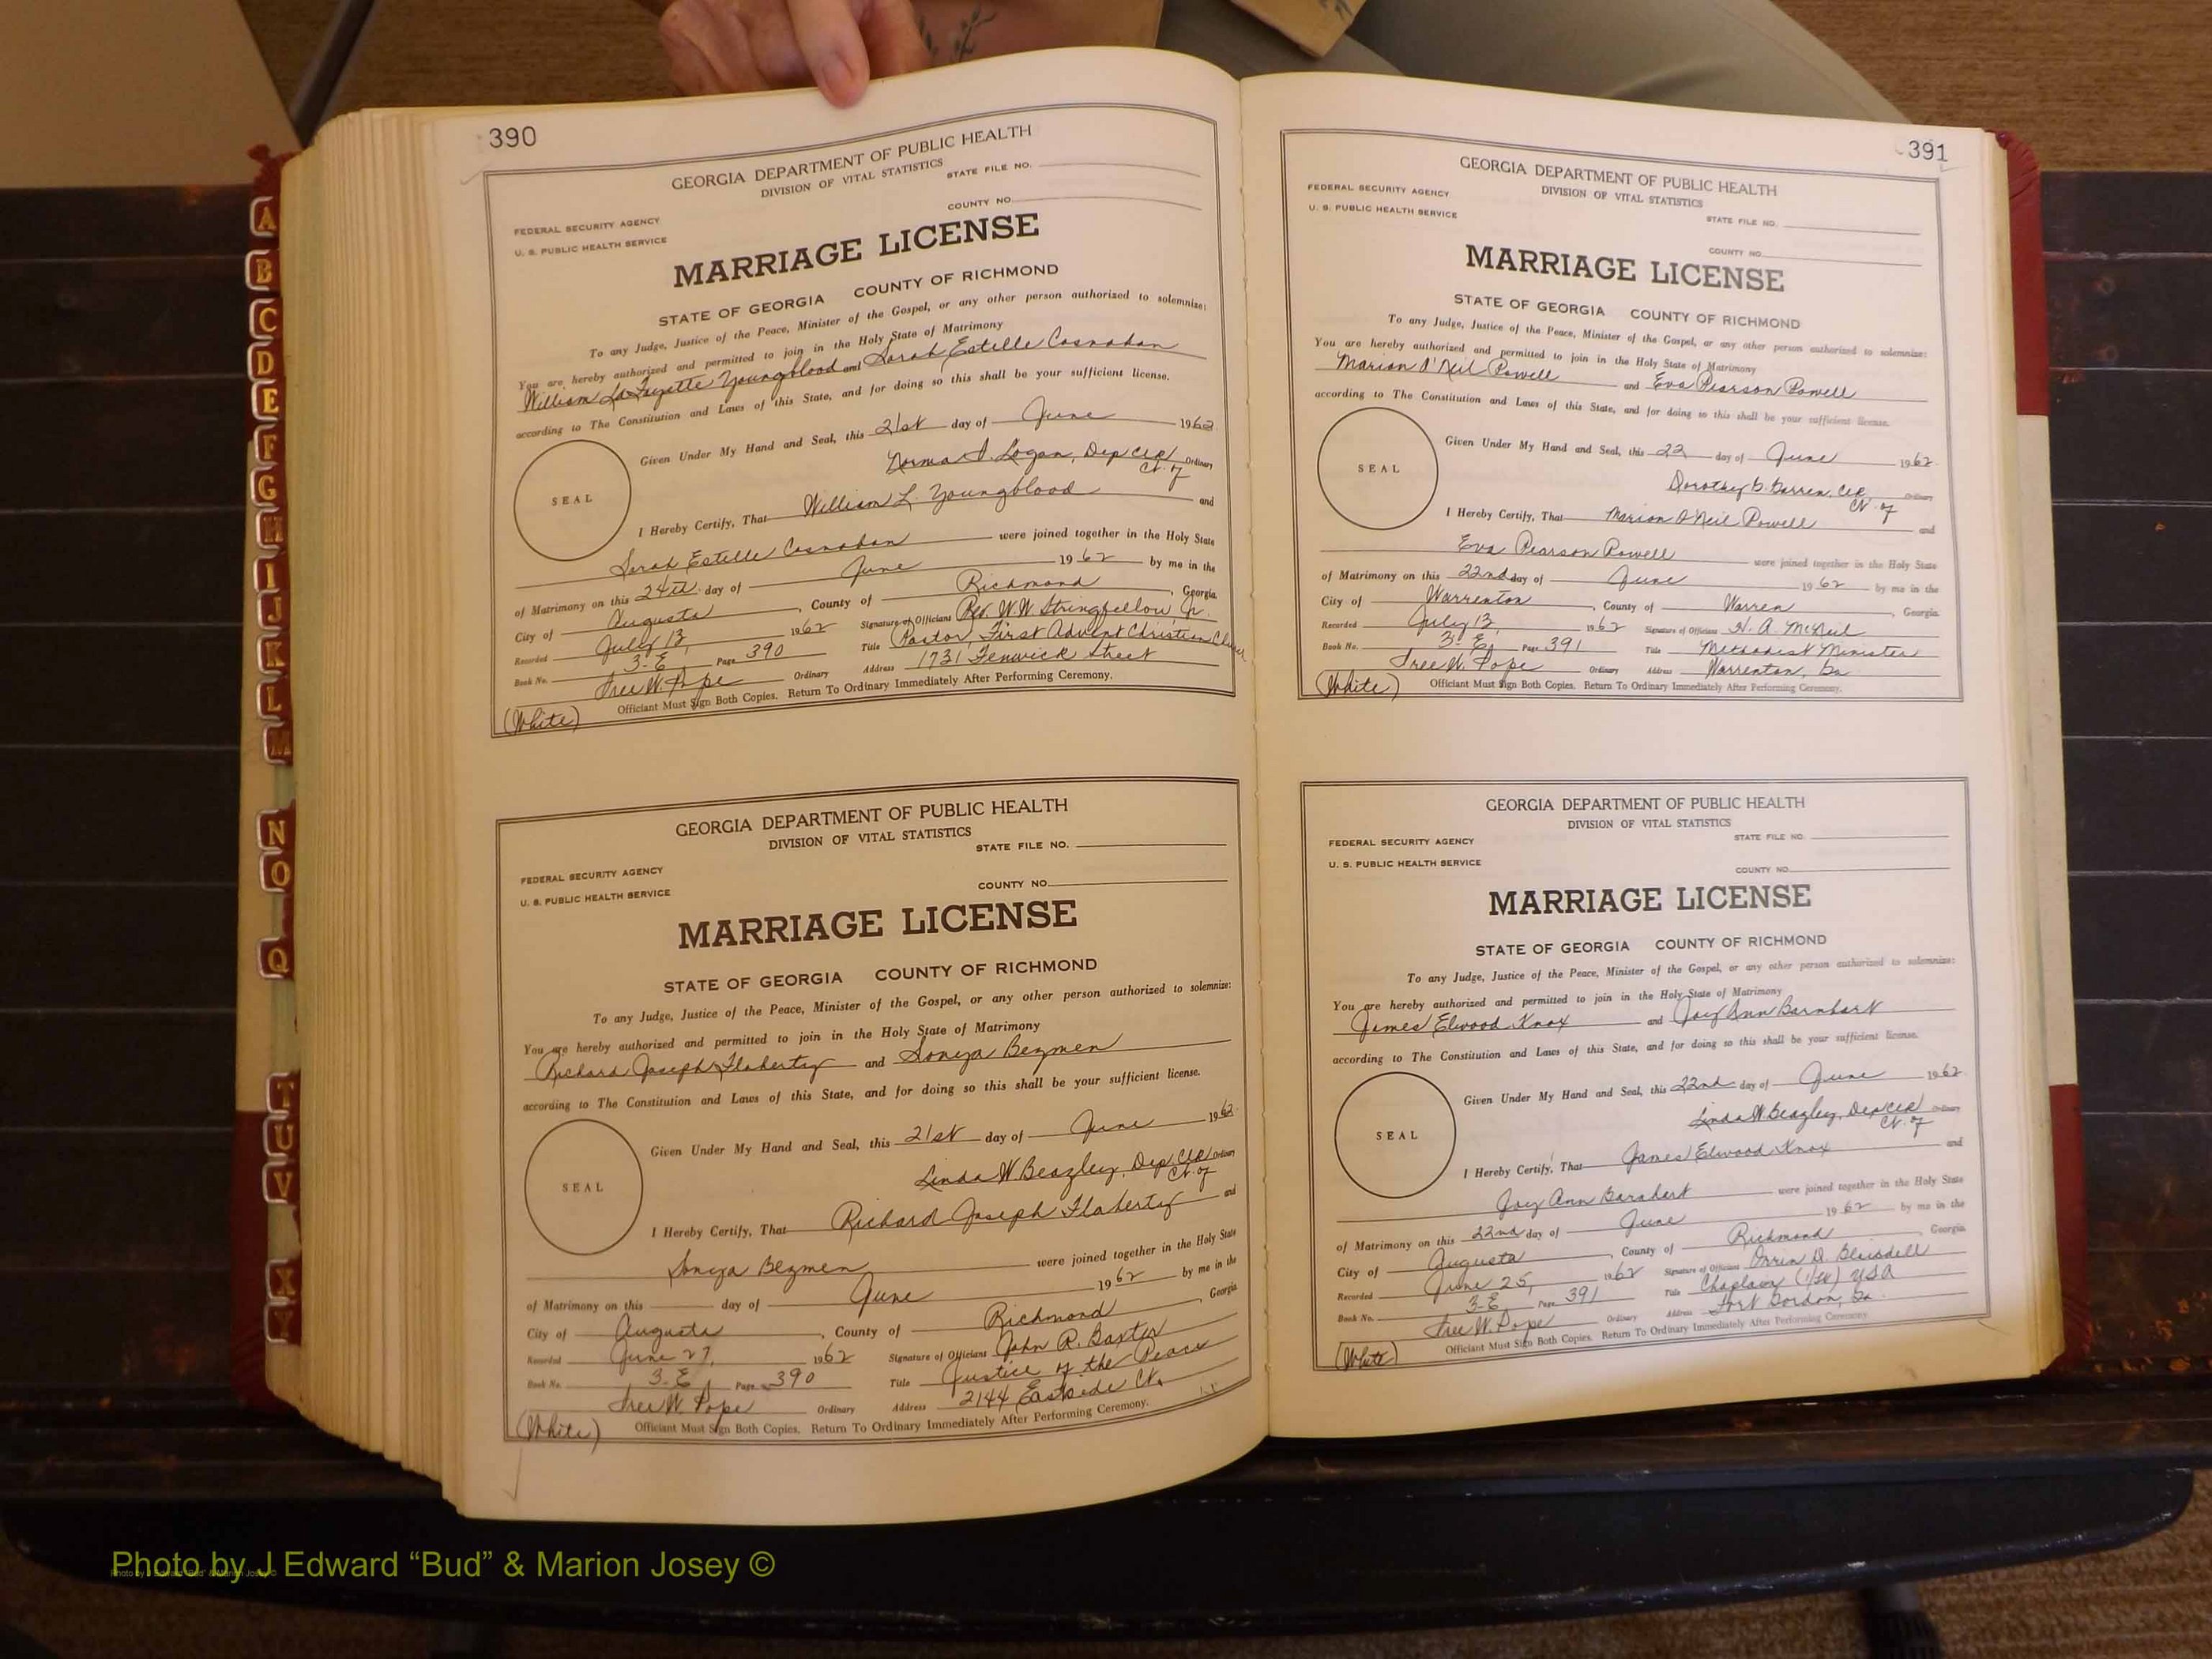 A
B
C
D
E
F
G
H
I
J
K
L
M
N
O
Q
T
U
V
X
Y
390
GEORGIA DEPARTMENT OF PUBLIC HEALTH
DIVISION OF VITAL STATISTICS
STATE FILE NO.
COUNTY NO.
FEDERAL SECURITY AGENCY
U. S. PUBLIC HEALTH SERVICE
MARRIAGE LICENSE
STATE OF GEORGIA COUNTY OF RICHMOND
To any Judge, Justice of the Peace, Minister of the Gospel, or any other person authorized to solemnize:
You are hereby authorized and permitted to join in the Holy State of Matrimony
William LaFayette Youngblood and Sarah Estelle Cosnahan
according to The Constitution and Laws of this State, and for doing so this shall be your sufficient license.
Given Under My Hand and Seal, this 21st day of June 1962
Norma I. Logan, Dep Clk Ordinary
Ct. of
SEAL
I Hereby Certify, That William L. Youngblood and
Sarah Estelle Cosnahan were joined together in the Holy State
of Matrimony on this 24th day of June 1962 by me in the
City of Augusta, County of Richmond, Georgia.
Recorded July 13, 1962 Signature of Officiant Rev. W. W. Stringfellow, Jr.
Book No. 3-E Page 390 Title Pastor, First Advent Christian Church
Free W. Pope Ordinary Address 1731 Fenwick Street
Officiant Must Sign Both Copies. Return To Ordinary Immediately After Performing Ceremony.
(White)
GEORGIA DEPARTMENT OF PUBLIC HEALTH
DIVISION OF VITAL STATISTICS
STATE FILE NO.
FEDERAL SECURITY AGENCY
U. S. PUBLIC HEALTH SERVICE
COUNTY NO.
MARRIAGE LICENSE
STATE OF GEORGIA COUNTY OF RICHMOND
To any Judge, Justice of the Peace, Minister of the Gospel, or any other person authorized to solemnize:
You are hereby authorized and permitted to join in the Holy State of Matrimony
Richard Joseph Flaherty and Sonya Bezmen
according to The Constitution and Laws of this State, and for doing so this shall be your sufficient license.
Given Under My Hand and Seal, this 21st day of June 1962
Linda W Beazley, Dep Clk Ordinary
Ct. of
SEAL
I Hereby Certify, That Richard Joseph Flaherty and
Sonya Bezmen were joined together in the Holy State
of Matrimony on this day of June 1962 by me in the
City of Augusta, County of Richmond, Georgia.
Recorded June 27, 1962 Signature of Officiant John R. Baxter
Book No. 3-E Page 390 Title Justice of the Peace
Free W. Pope Ordinary Address 2144 Eastside Ct.
Officiant Must Sign Both Copies. Return To Ordinary Immediately After Performing Ceremony.
(White)
391
GEORGIA DEPARTMENT OF PUBLIC HEALTH
DIVISION OF VITAL STATISTICS
FEDERAL SECURITY AGENCY
U. S. PUBLIC HEALTH SERVICE
STATE FILE NO.
COUNTY NO.
MARRIAGE LICENSE
STATE OF GEORGIA COUNTY OF RICHMOND
To any Judge, Justice of the Peace, Minister of the Gospel, or any other person authorized to solemnize:
You are hereby authorized and permitted to join in the Holy State of Matrimony
Marion O'Neil Powell and Eva Pearson Powell
according to The Constitution and Laws of this State, and for doing so this shall be your sufficient license.
Given Under My Hand and Seal, this 22 day of June 1962
Dorothy G. Barren, Clk. Ordinary
Ct. of
SEAL
I Hereby Certify, That Marion O'Neil Powell and
Eva Pearson Powell were joined together in the Holy State
of Matrimony on this 22nd day of June 1962 by me in the
City of Warrenton, County of Warren, Georgia.
Recorded July 13, 1962 Signature of Officiant H. A. McNeil
Book No. 3-E, Page 391 Title Methodist Minister
Free W. Pope Ordinary Address Warrenton, Ga.
Officiant Must Sign Both Copies. Return To Ordinary Immediately After Performing Ceremony.
(White)
GEORGIA DEPARTMENT OF PUBLIC HEALTH
DIVISION OF VITAL STATISTICS
STATE FILE NO.
FEDERAL SECURITY AGENCY
U. S. PUBLIC HEALTH SERVICE
COUNTY NO.
MARRIAGE LICENSE
STATE OF GEORGIA COUNTY OF RICHMOND
To any Judge, Justice of the Peace, Minister of the Gospel, or any other person authorized to solemnize:
You are hereby authorized and permitted to join in the Holy State of Matrimony
James Elwood Knox and Joy Ann Barnhart
according to The Constitution and Laws of this State, and for doing so this shall be your sufficient license.
Given Under My Hand and Seal, this 22nd day of June 1962
Linda W Beazley, Dep Clk Ordinary
Ct. of
SEAL
I Hereby Certify, That James Elwood Knox and
Joy Ann Barnhart were joined together in the Holy State
of Matrimony on this 22nd day of June 1962 by me in the
City of Augusta, County of Richmond, Georgia.
Recorded June 25, 1962 Signature of Officiant Orrin D. Blaisdell
Book No. 3-E Page 391 Title Chaplain (1/Lt) USA
Free W. Pope Ordinary Address Fort Gordon, Ga.
Officiant Must Sign Both Copies. Return To Ordinary Immediately After Performing Ceremony.
(White)
Photo by J Edward “Bud” & Marion Josey ©
Photo by J Edward “Bud” & Marion Josey ©